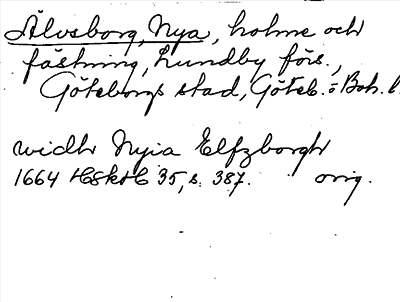 Älvsborg, Nya, holme och
fästning, Lundby förs.,
Göteborgs stad, Göteb. o Boh. l
widh Nyia Elfzborgh
1664 HSkH 35, s. 387. orig.